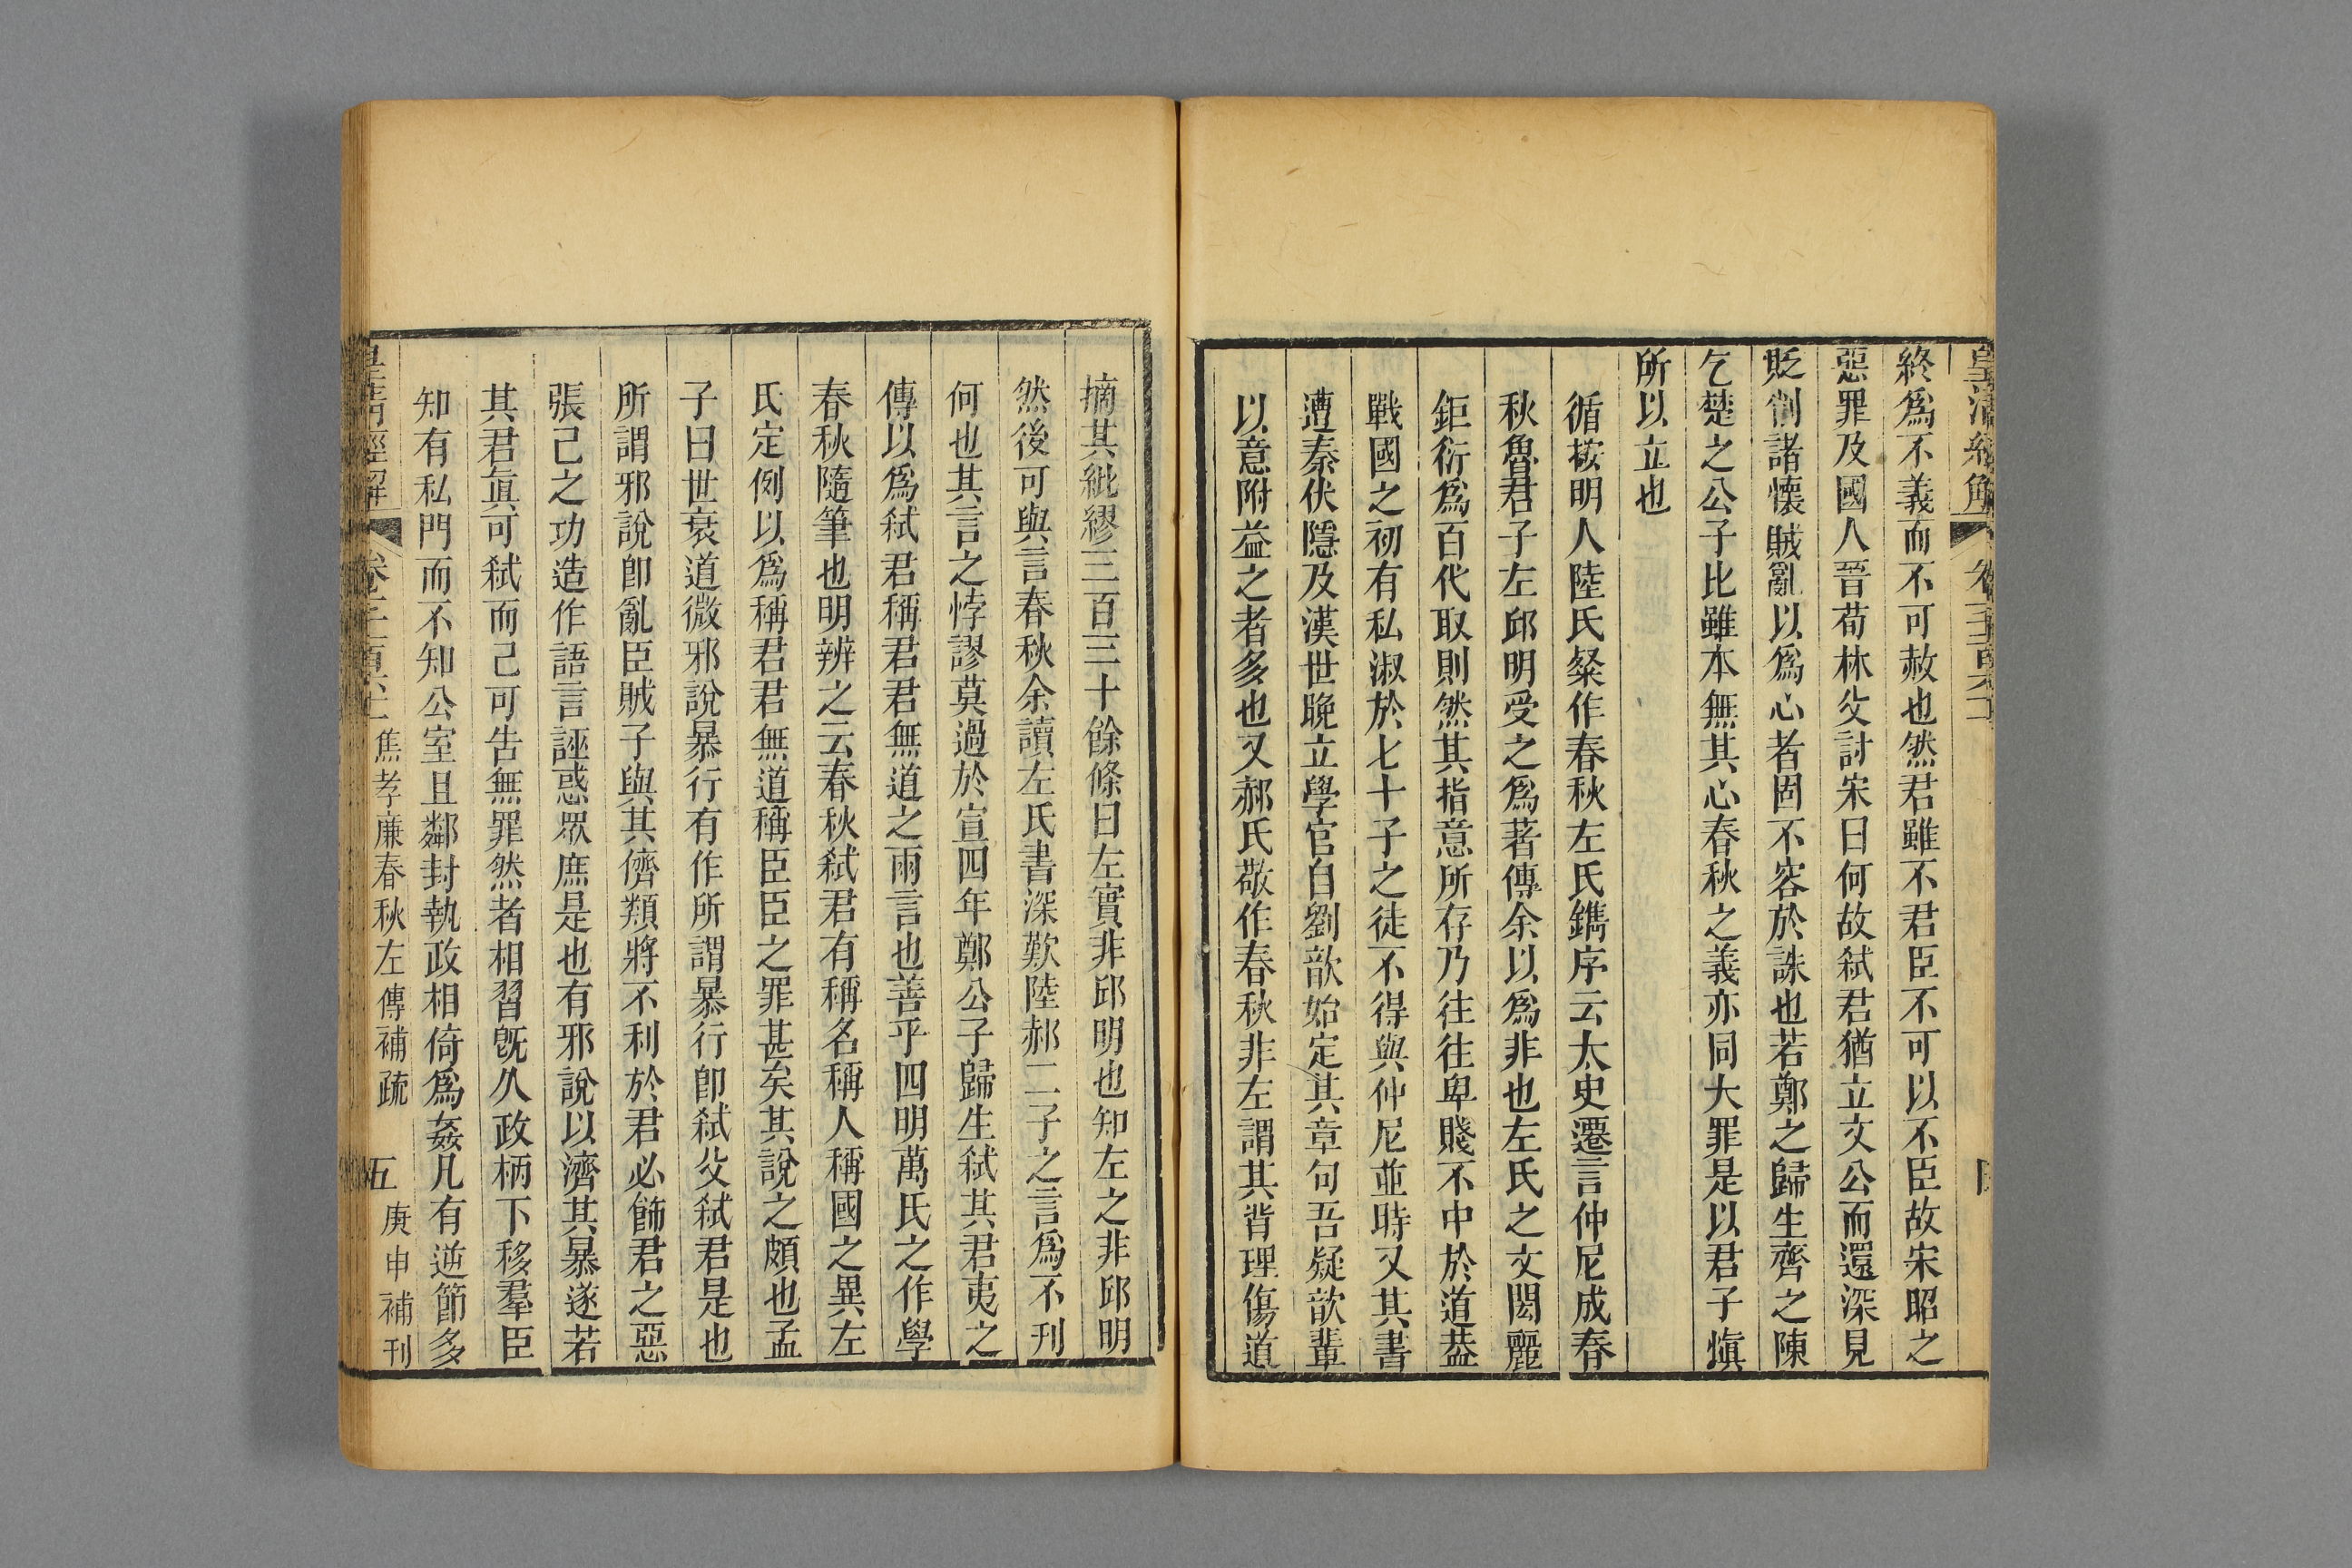 皇清經解
終爲不義而不可赦也然君雖不君臣不可以不臣故宋昭之
惡罪及國人晉荀林父討宋曰何故弑君猶立文公而還深見
貶削諸懷賊亂以爲心者固不容於誅也若鄭之歸生齊之陳
乞楚之公子比雖本無其心春秋之義亦同大罪是以君子愼
所以立也
循按明人陸氏粲作春秋左氏鐫序云太史遷言仲尼成春
秋魯君子左邱明受之爲著傳余以爲非也左氏之文閎麗
鉅衍爲百代取則然其指意所存乃往往卑賤不中於道葢
戰國之初有私淑於七十子之徒不得與仲尼並時又其書
遭秦伏隱及漢世晚立學官自劉歆始定其章句吾疑歆輩
以意附益之者多也又郝氏敬作春秋非左謂其背理傷道
摘其紕繆三百三十餘條曰左實非邱明也知左之非邱明
然後可與言春秋余讀左氏書深歎陸郝二子之言爲不刊
何也其言之悖謬莫過於宣四年鄭公子歸生弑其君夷之
傳以爲弑君稱君君無道之兩言也善乎四明萬氏之作學
春秋隨筆也明辨之云春秋弑君有稱名稱人稱國之異左
氏定例以爲稱君君無道稱臣臣之罪甚矣其說之頗也孟
子曰世衰道微邪說暴行有作所謂暴行卽弑父弑君是也
所謂邪說卽亂臣賊子與其儕類將不利於君必飾君之惡
張己之功造作語言誣惑眾庶是也有邪說以濟其暴遂若
其君眞可弑而己可告無罪然者相習旣久政柄下移羣臣
知有私門而不知公室且鄰封執政相倚爲姦凡有逆節多
皇淸經解 焦孝廉春秋左傳補疏 五 庚申補刊